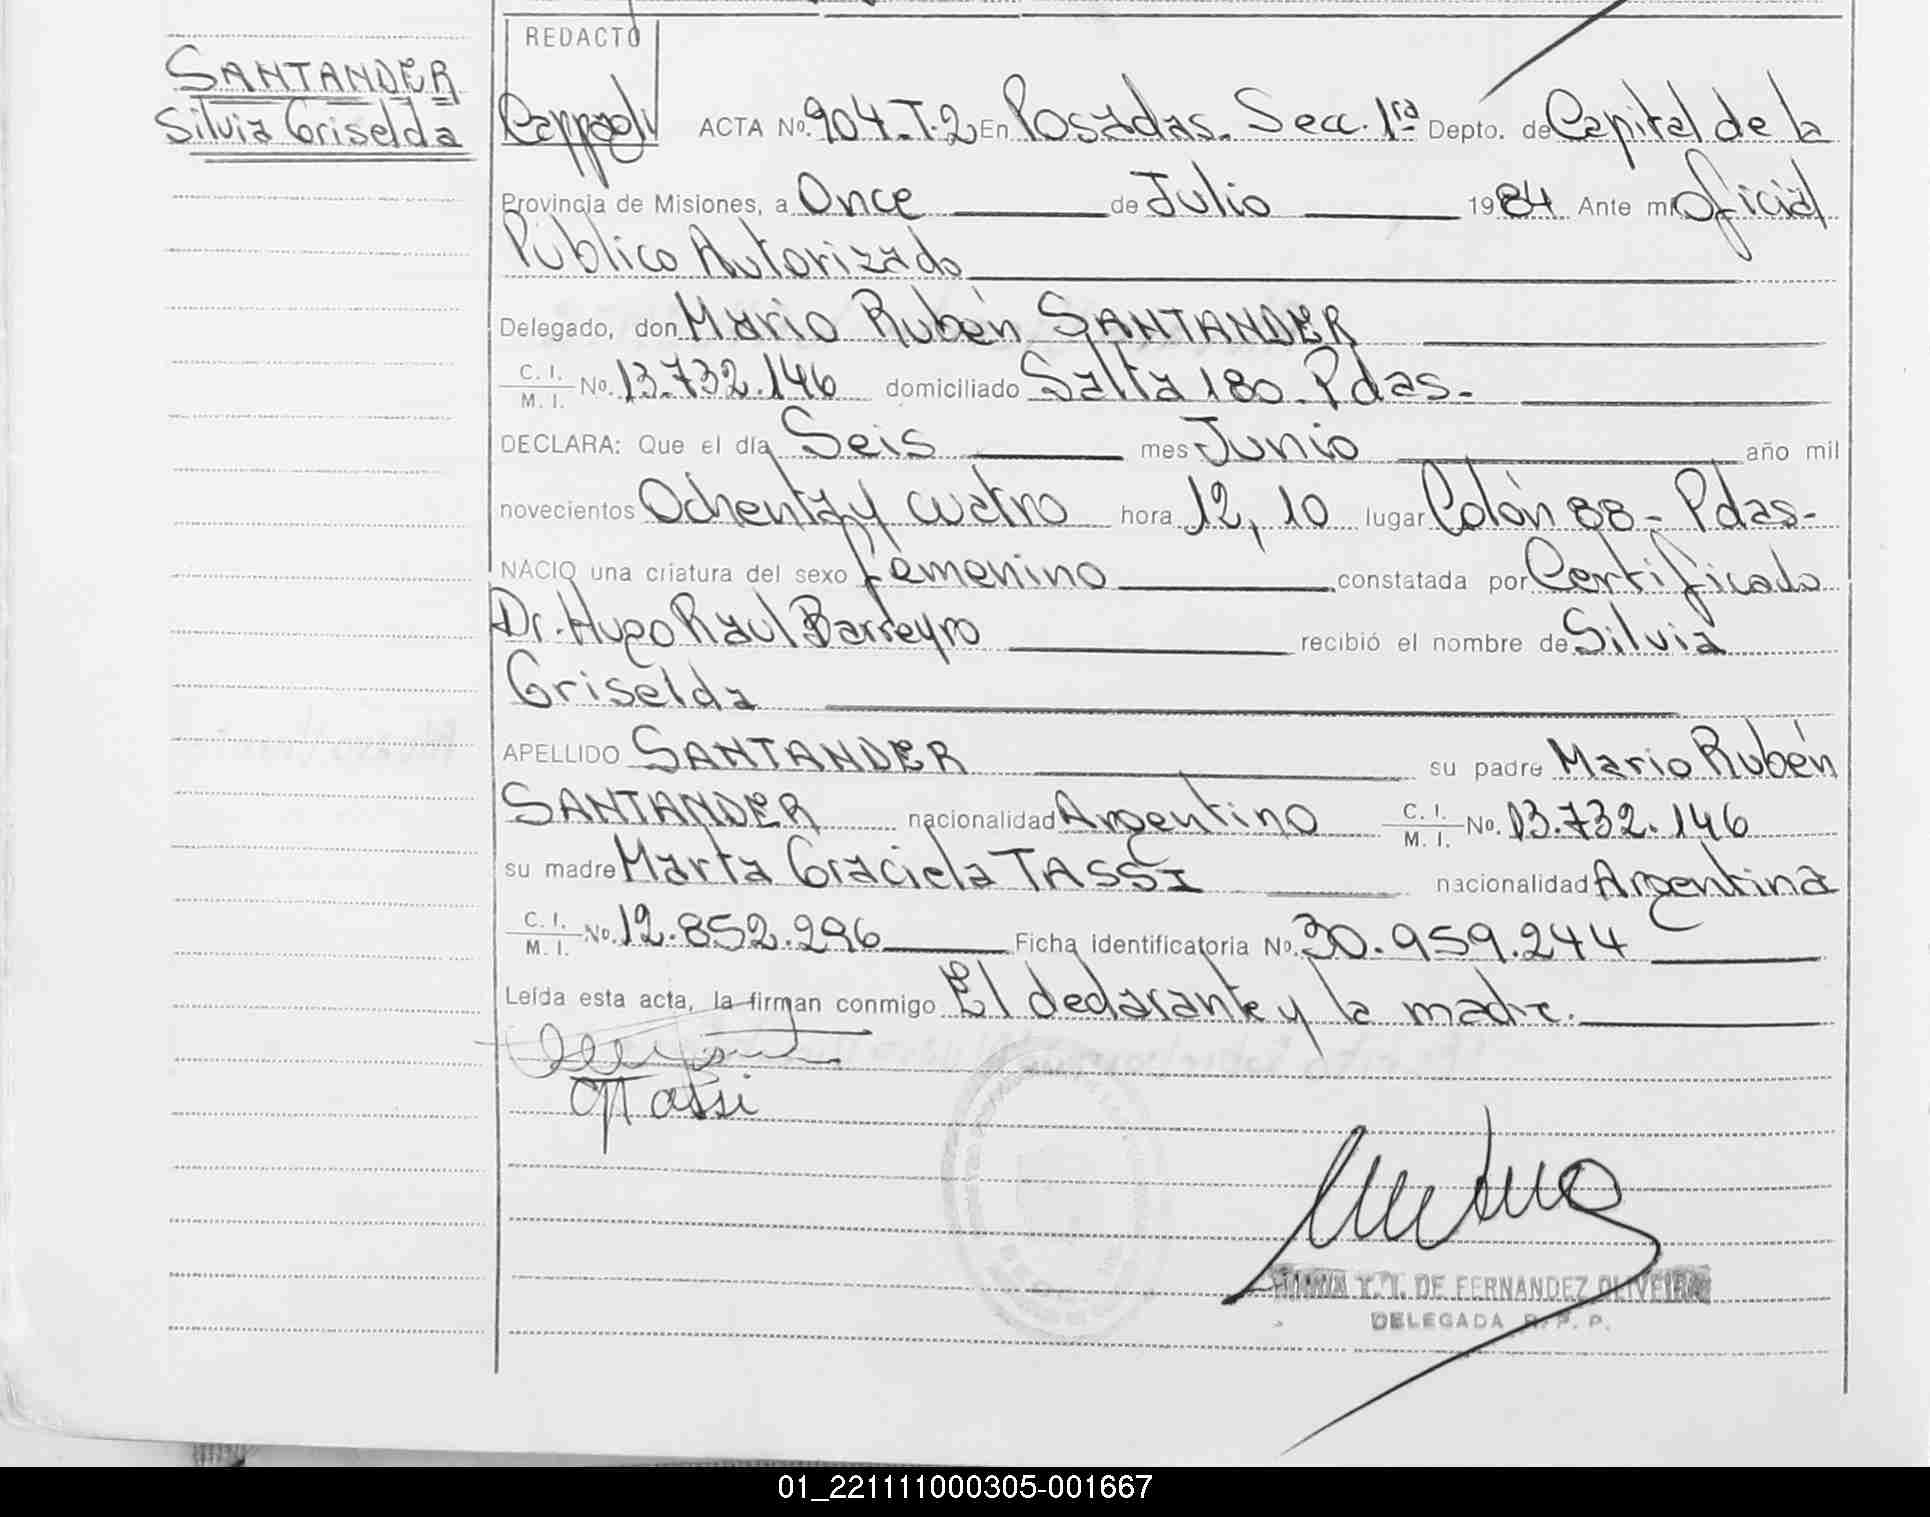 SANTANDER
Silvia Griselda
REDACTO
ACTA No. 904-T-2 En Posadas. Secc. 1ra Depto. de Capital de la
Provincia de Misiones, a Once de Julio 1984 Ante mi Oficial
Público Autorizado
Delegado, don Mario Rubén SANTANDER
C. I. / M. I. No. 13.732.146 domiciliado Salta 180. Pdas.-
DECLARA: Que el día Seis mes Junio año mil
novecientos Ochenta y cuatro hora 12,10 lugar Colón 88- Pdas-
NACIO una criatura del sexo femenino constatada por Certificado
Dr. Hugo Raul Barreyro recibió el nombre de Silvia
Griselda
APELLIDO SANTANDER su padre Mario Rubén
SANTANDER nacionalidad Argentino C. I. / M. I. No. 13.732.146
su madre Marta Graciela TASSI nacionalidad Argentina
C. I. / M. I. No. 12.852.296 Ficha identificatoria No. 30.959.244
Leída esta acta, la firman conmigo El declarante y la madre.
Tassi
MARIA T. T. DE FERNANDEZ OLIVEIRA
DELEGADA R. P. P.
01_221111000305-001667